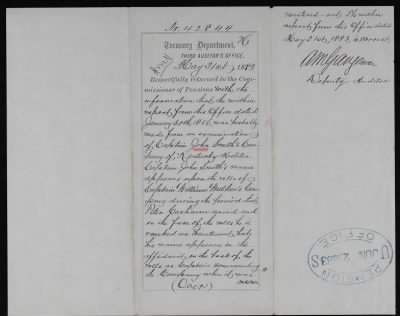 No. 42844
Treasury Department,
THIRD AUDITOR'S OFFICE,
May 21st, 1883
Respectfully returned to the Com-
missioner of Pensions with the
information that the within
report from this Office dated
January 20th 1856, was probably
made from an examination
of Captain John Smith's Com-
pany of Kentucky Militia
Captain John Smith's name
appears upon the rolls of
Captain William Walker's Com-
pany during the period that
Peter Cashman served and
on the face of the rolls he is
ranked as Lieutenant, but
his name appears in the
affidavit on the back of the
rolls as Captain commanding
the Company when it was
(Over)
mustered out. The within
report from this Office dated
May 21st, 1883, is correct.
Deputy Auditor
U.S. PENSION OFFICE
JUN 2 1883